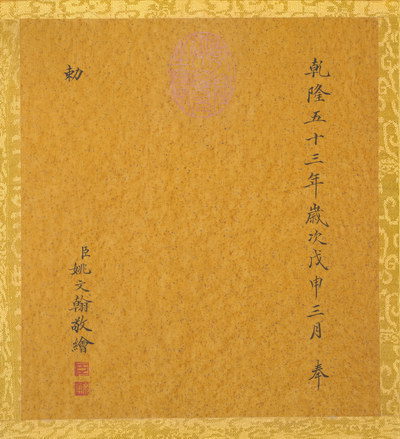 乾隆五十三年歲次戊申三月 奉
勅
臣姚文翰敬繪